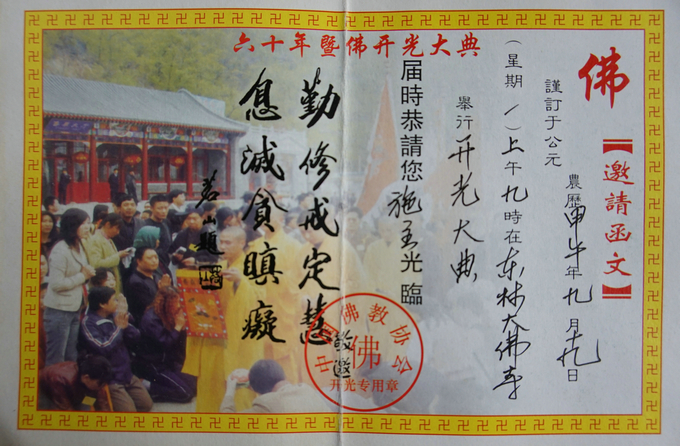 六十年暨佛开光大典
佛
【邀請函文】
謹訂于公元
農歷甲午年九月十九日
(星期一)上午九時在东林大佛寺
舉行开光大典
届時恭請您施主光臨
敬邀
勤修戒定慧
息滅貪瞋癡
茗山題
中国佛教协会
佛
开光专用章